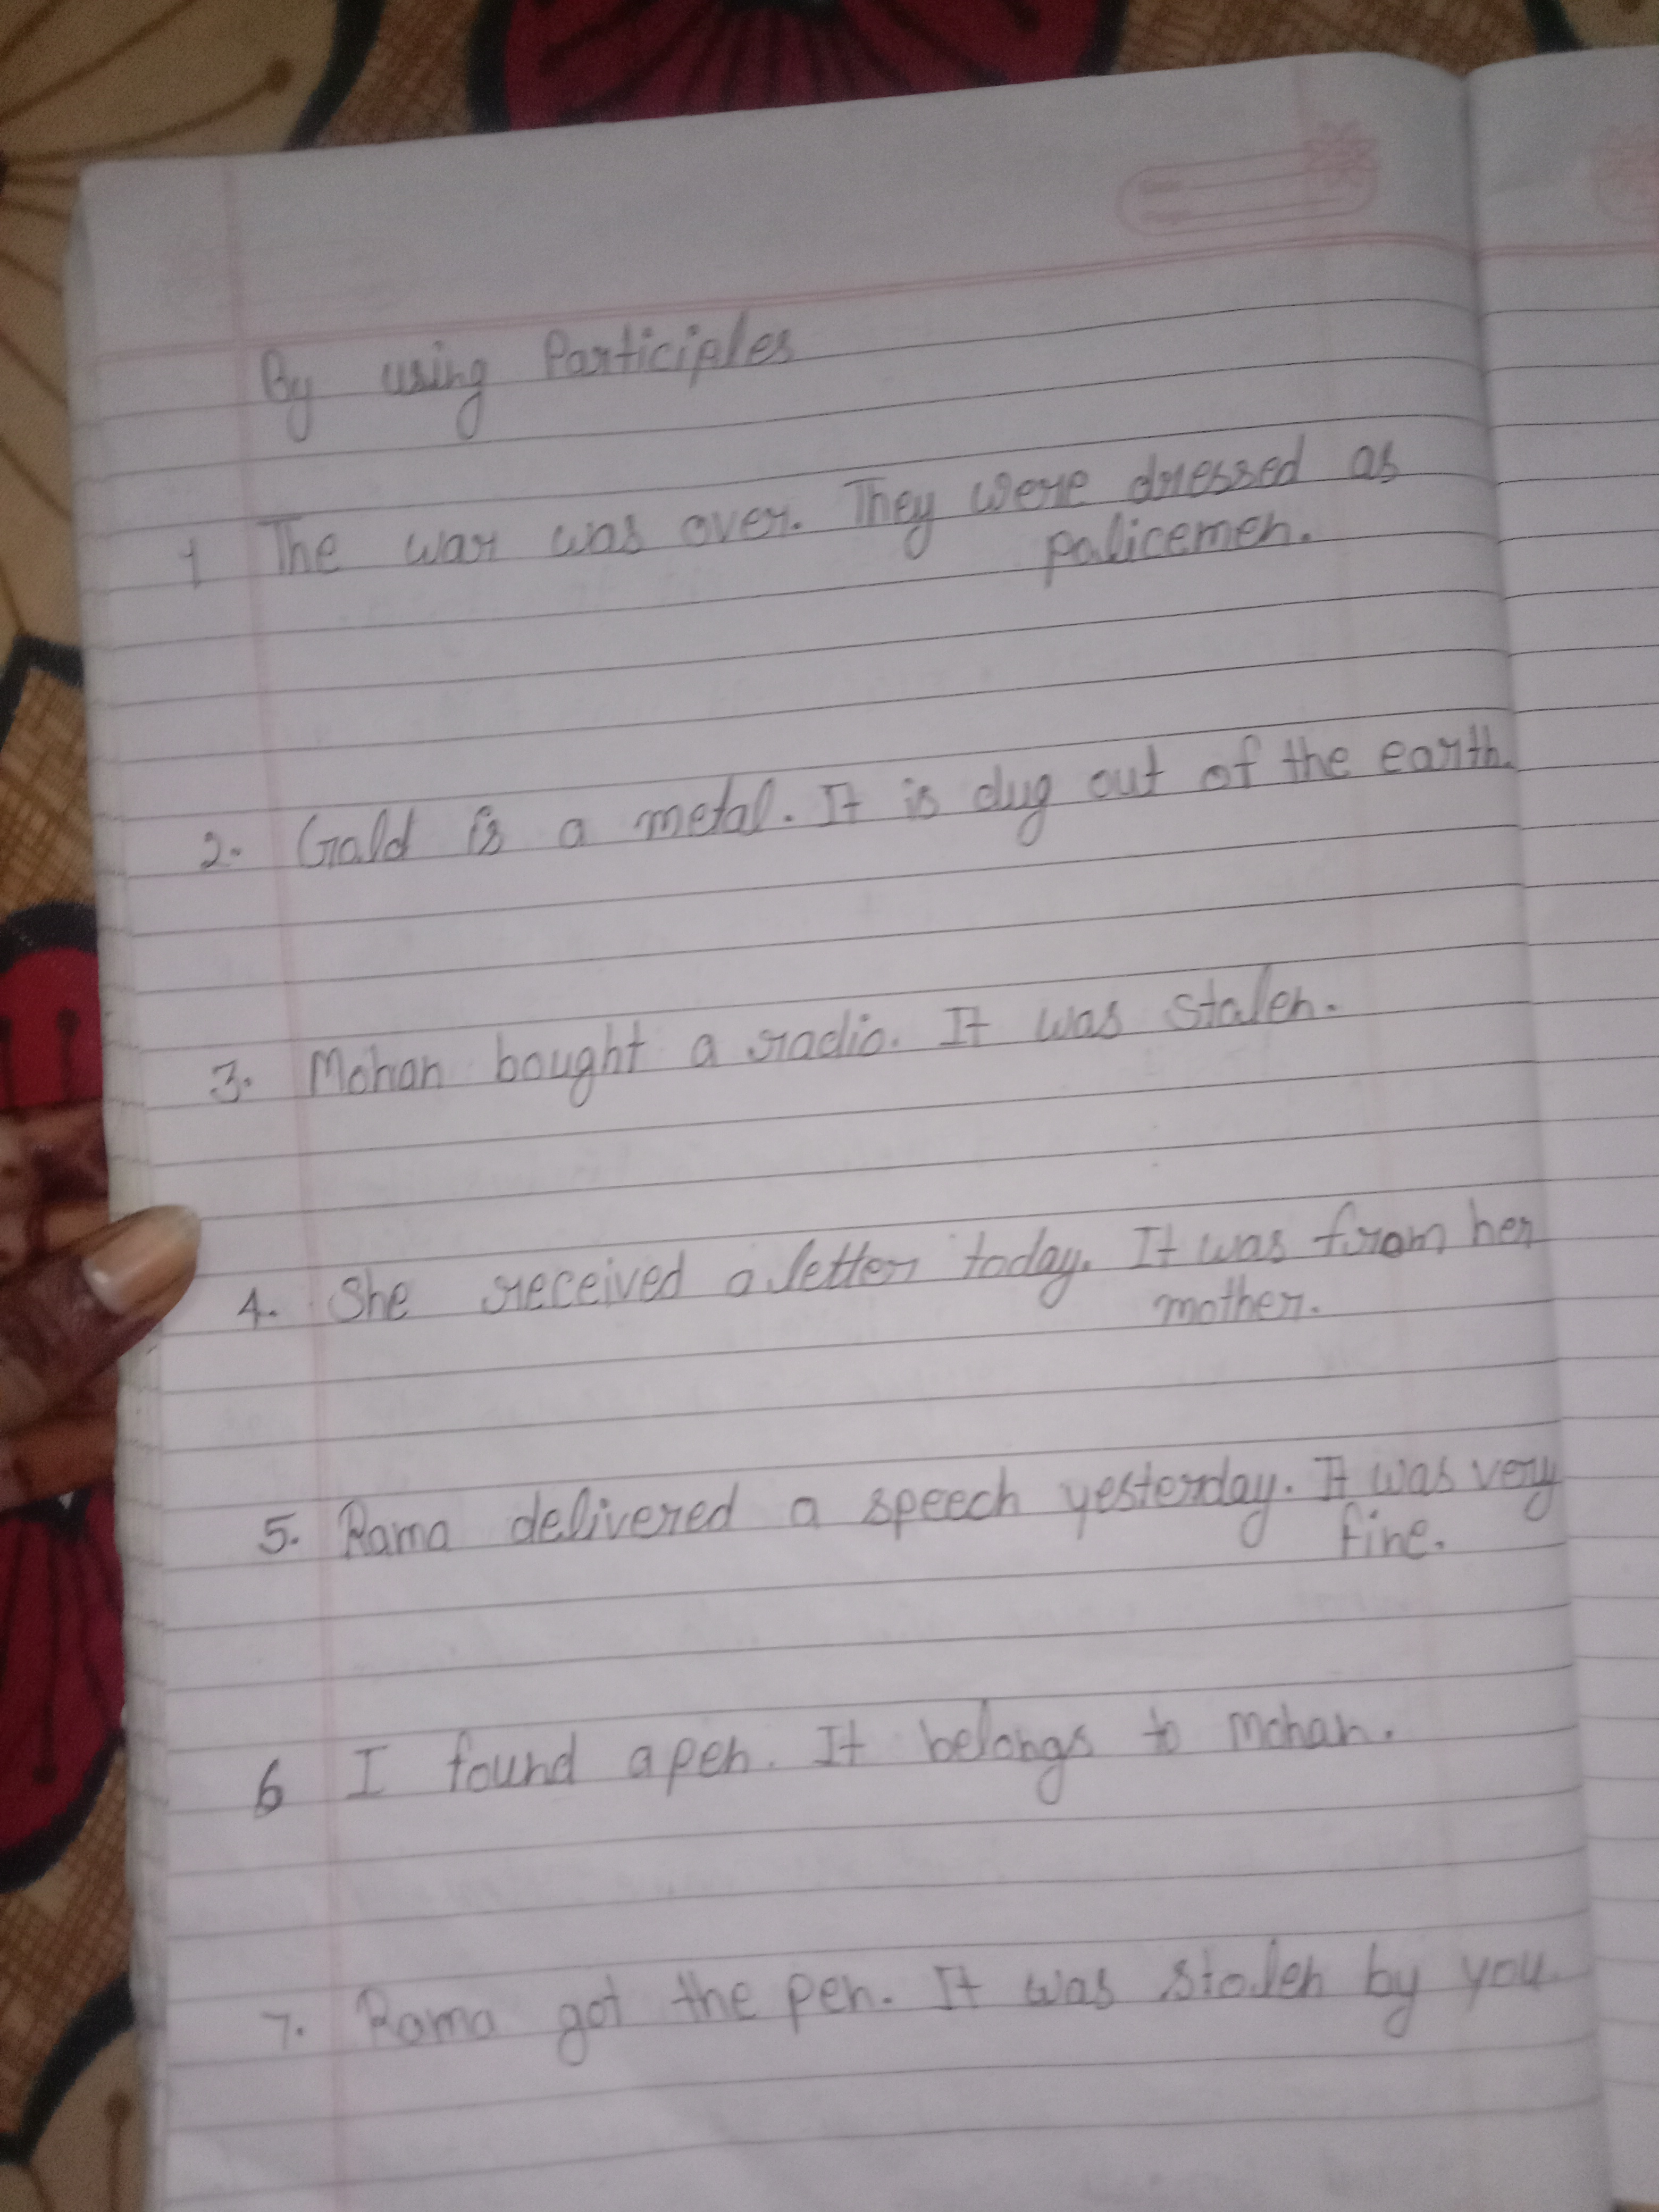 By using Participles
1 The war was over. They were dressed as
policemen.
2. Gold is a metal. It is dug out of the earth.
3. Mohan bought a radio. It was stolen.
4. She received a letter today. It was from her
mother.
5. Rama delivered a speech yesterday. It was very
fine.
6 I found a pen. It belongs to Mohan.
7. Rama got the pen. It was stolen by you